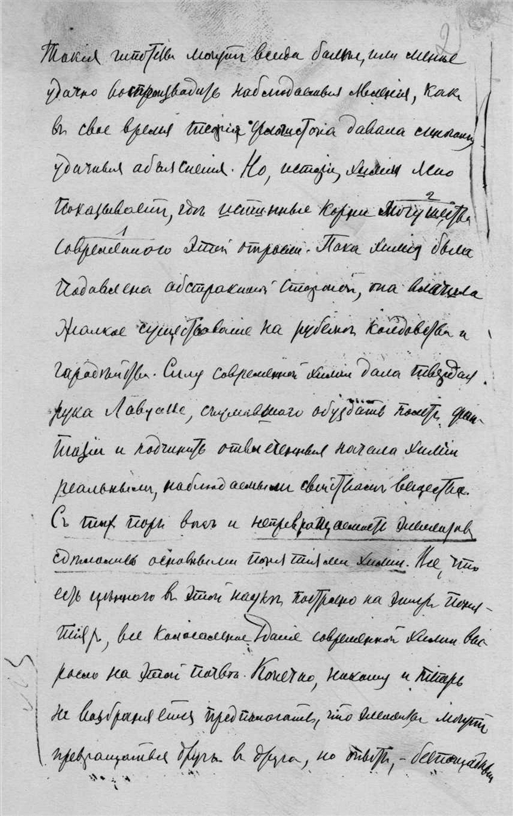 Такія гипотезы могутъ всегда болѣе, или менѣе
удачно воспроизводить наблюдаемыя явленія, какъ
въ свое время теорія флогистона давала
удачныя объясненія. Но, исторія химіи ясно
показываетъ, гдѣ истинные корни могущества
современного этой отрасли. Пока химія была
подавлена абстрактной стороной, она влачила
жалкое существованіе на рубежѣ колдовства и
шарлатанства. Силу современной химіи дала твердая
рука Лавуазье, сумѣвшаго обуздать полетъ фан-
тазіи и подчинить отвлеченныя начала химіи
реальнымъ, наблюдаемымъ свойствамъ вещества.
Съ тѣхъ поръ вѣсъ и непревращаемость элементовъ
сдѣлались основными понятіями химіи. Все, что
есть цѣннаго въ этой наукѣ построено на этихъ поня-
тіяхъ, все колоссальное зданіе современной химіи вы-
росло на этой почвѣ. Конечно, никому и теперь
не возбраняется предполагать, что элементы могутъ
превращаться другъ въ друга, но опытъ, - безпощадный